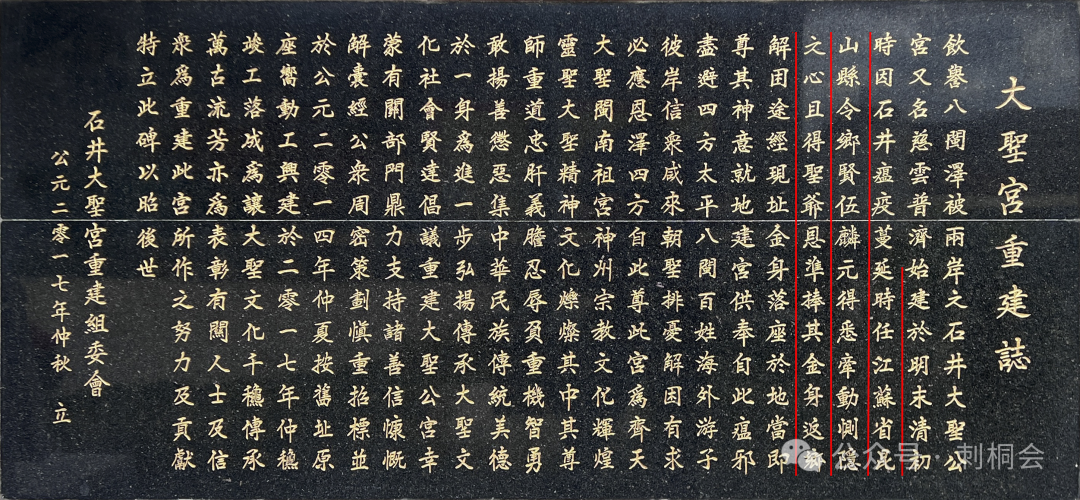 大聖宮重建誌
飲譽八閩澤被兩岸之石井大聖公
宮又名慈雲普濟始建於明末清初
時因石井瘟疫蔓延時任江蘇省昆
山縣令鄉賢伍麟元得悉牽動惻隱
之心且得聖爺恩準捧其金身返鄉
解困途經現址金身落座於地當即
尊其神意就地建宮供奉自此瘟邪
盡避四方太平八閩百姓海外游子
彼岸信衆咸來朝聖排憂解困有求
必應恩澤四方自此尊此宮爲齊天
大聖閩南祖宮神州宗教文化輝煌
靈聖大聖精神文化爍燦其中其尊
師重道忠肝義膽忍辱負重機智勇
敢揚善懲惡集中華民族傳統美德
於一身爲進一步弘揚傳承大聖文
化社會賢達倡議重建大聖公宮幸
蒙有關部門鼎力支持諸善信慷慨
解囊經公衆周密策劃慎重招標並
於公元二零一四年仲夏按舊址原
座嚮動工興建於二零一七年仲穐
竣工落成爲讓大聖文化千穐傳承
萬古流芳亦爲表彰有關人士及信
衆爲重建此宮所作之努力及貢獻
特立此碑以昭後世
石井大聖宮重建組委會
公元二零一七年仲秋 立
公众号·刺桐会